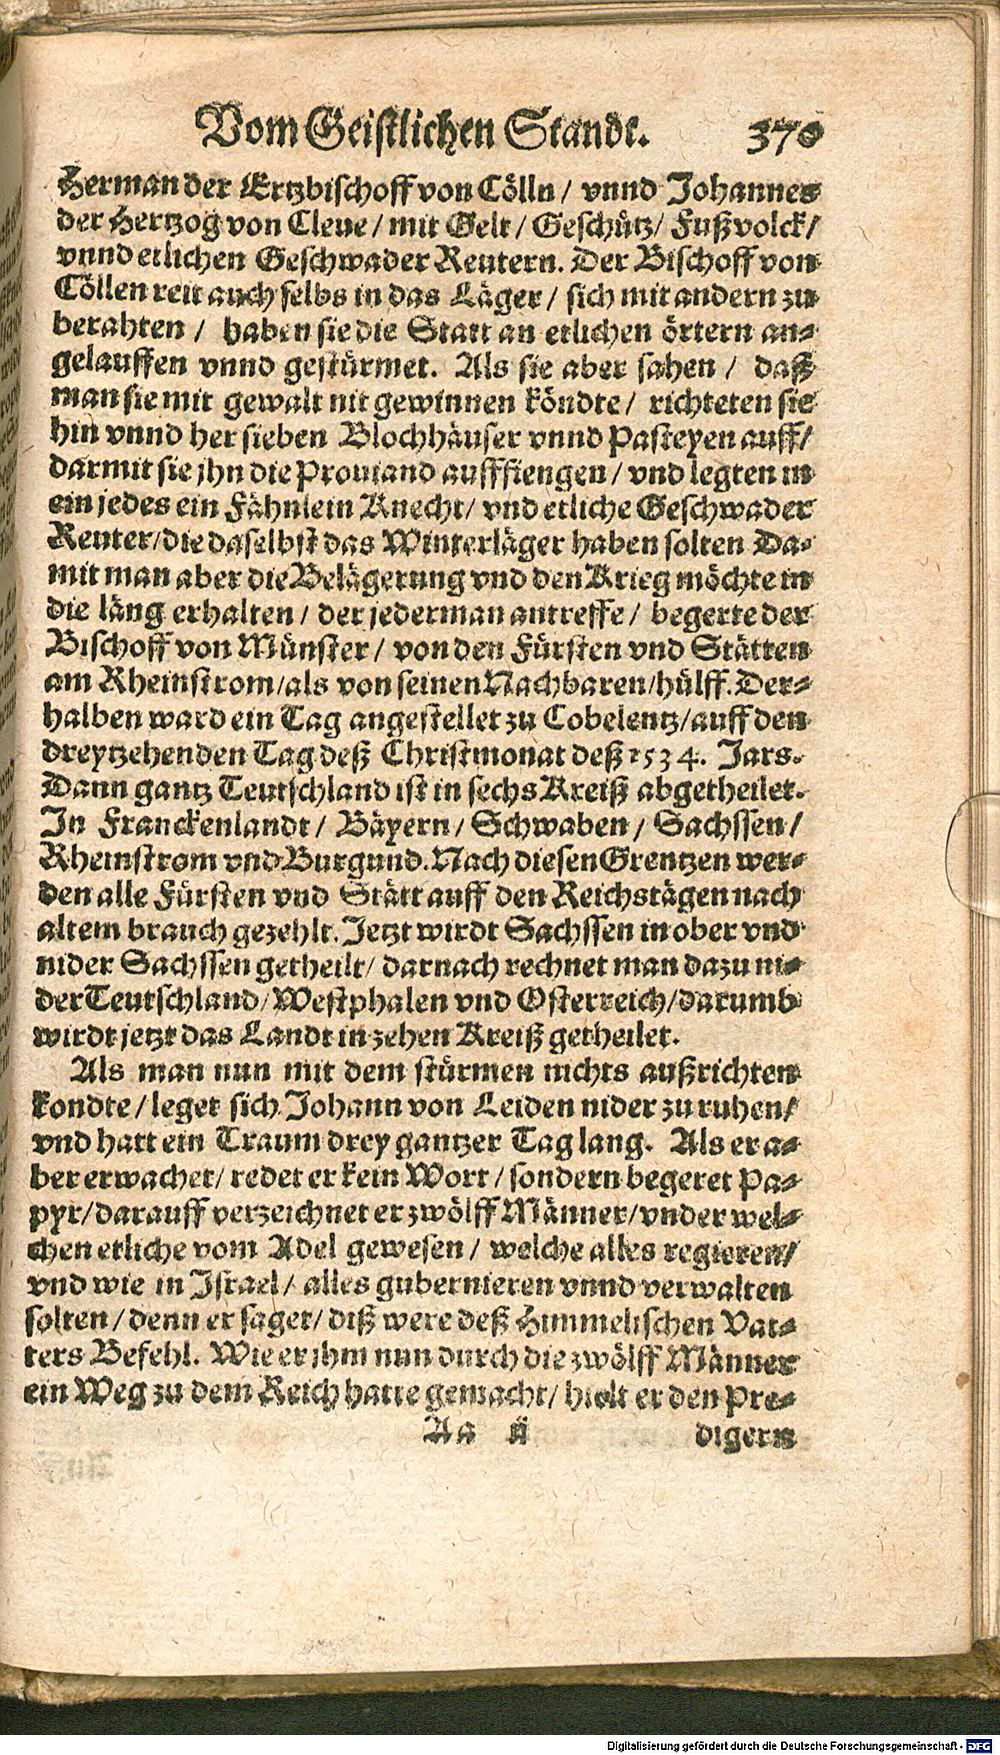 Vom Geistlichen Standt. 370
Herman der Ertzbischoff von Cölln / vnnd Johannes
der Hertzog von Cleue / mit Gelt / Geschütz / Fußvolck /
vnnd etlichen Geschwader Reutern. Der Bischoff von
Cöllen reit auch selbs in das Läger / sich mit andern zu
berahten / haben sie die Statt an etlichen örtern an-
gelauffen vnnd gestürmet. Als sie aber sahen / daß
man sie mit gewalt nit gewinnen köndte / richteten sie
hin vnnd her sieben Blochhäuser vnnd Pasteyen auff /
darmit sie jhn die Prouiand aufffiengen / vnd legten in
ein jedes ein Fähnlein Knecht / vnd etliche Geschwader
Reuter / die daselbst das Winterläger haben solten Da-
mit man aber die Belägerung vnd den Krieg möchte in
die läng erhalten / der jederman antreffe / begerte der
Bischoff von Münster / von den Fürsten vnd Stätten
am Rheinstrom / als von seinen Nachbaren / hülff. Der-
halben ward ein Tag angestellet zu Cobelentz / auff den
dreytzehenden Tag deß Christmonat deß 1534. Jars.
Dann gantz Teutschland ist in sechs Kreiß abgetheilet.
In Franckenlandt / Bäyern / Schwaben / Sachssen /
Rheinstrom vnd Burgund. Nach diesen Grentzen wer-
den alle Fürsten vnd Stätt auff den Reichstägen nach
altem brauch gezehlt. Jetzt wirdt Sachssen in ober vnd
nider Sachssen getheilt / darnach rechnet man dazu ni-
der Teutschland / Westphalen vnd Osterreich / darumb
wirdt jetzt das Landt in zehen Kreiß getheilet.
Als man nun mit dem stürmen nichts außrichten
kondte / leget sich Johann von Leiden nider zu ruhen /
vnd hatt ein Traum drey gantzer Tag lang. Als er a-
ber erwachet / redet er kein Wort / sondern begeret Pa-
pyr / darauff verzeichnet er zwölff Männer / vnder wel-
chen etliche vom Adel gewesen / welche alles regieren /
vnd wie in Israel / alles gubernieren vnnd verwalten
solten / denn er saget / diß were deß Himmelischen Vat-
ters Befehl. Wie er jhm nun durch die zwölff Männer
ein Weg zu dem Reich hatte gemacht / hielt er den Pre-
Aa ij digern
Digitalisierung gefördert durch die Deutsche Forschungsgemeinschaft - DFG